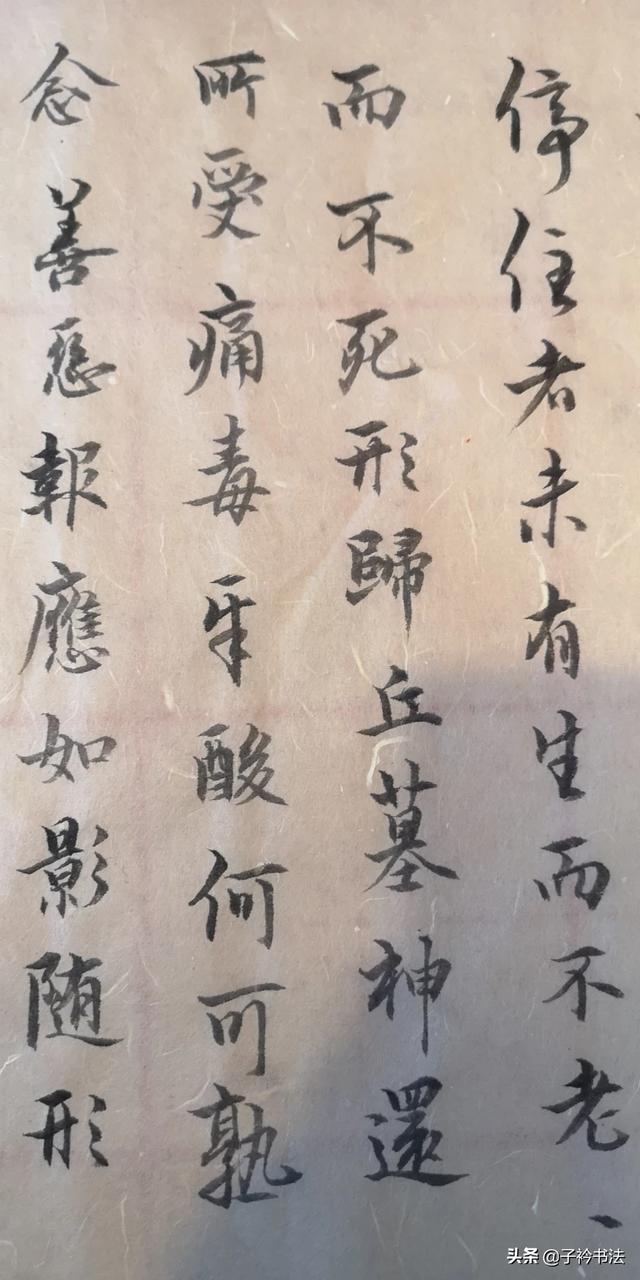 停住者未有生而不老、
而不死形歸丘墓神還
所受痛毒辛酸何可孰
念善惡報應如影随形
头条 @子衿书法